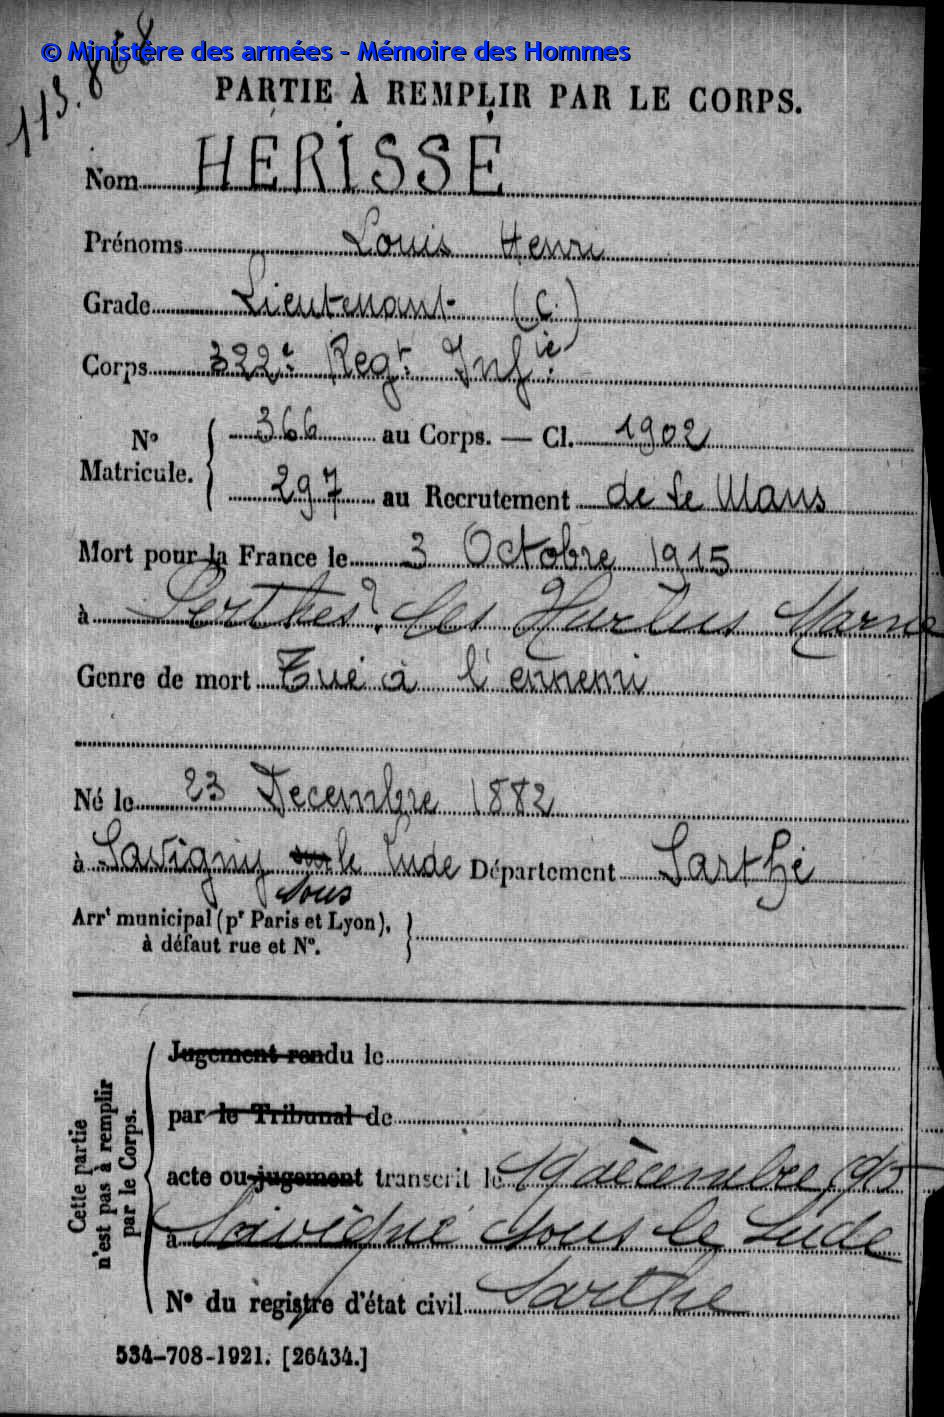 © Ministère des armées - Mémoire des Hommes
113.868
PARTIE À REMPLIR PAR LE CORPS.
Nom HÉRISSÉ
Prénoms Louis Henri
Grade Lieutenant (C.)
Corps 322e Regt. Infie.
No Matricule. 366 au Corps. — Cl. 1902
297 au Recrutement de Le Mans
Mort pour la France le 3 Octobre 1915
à Perthes les Hurlus Marne
Genre de mort Tué à l'ennemi
Né le 23 Décembre 1882
à Savigny sur le Lude Département Sarthe
sous
Arrt municipal (pr Paris et Lyon),
à défaut rue et No.
Cette partie
n'est pas à remplir
par le Corps.
Jugement rendu le
par le Tribunal de
acte ou jugement transcrit le 19 décembre 1915
à Savigné sous le Lude
No du registre d'état civil Sarthe
534-708-1921. [26434.]